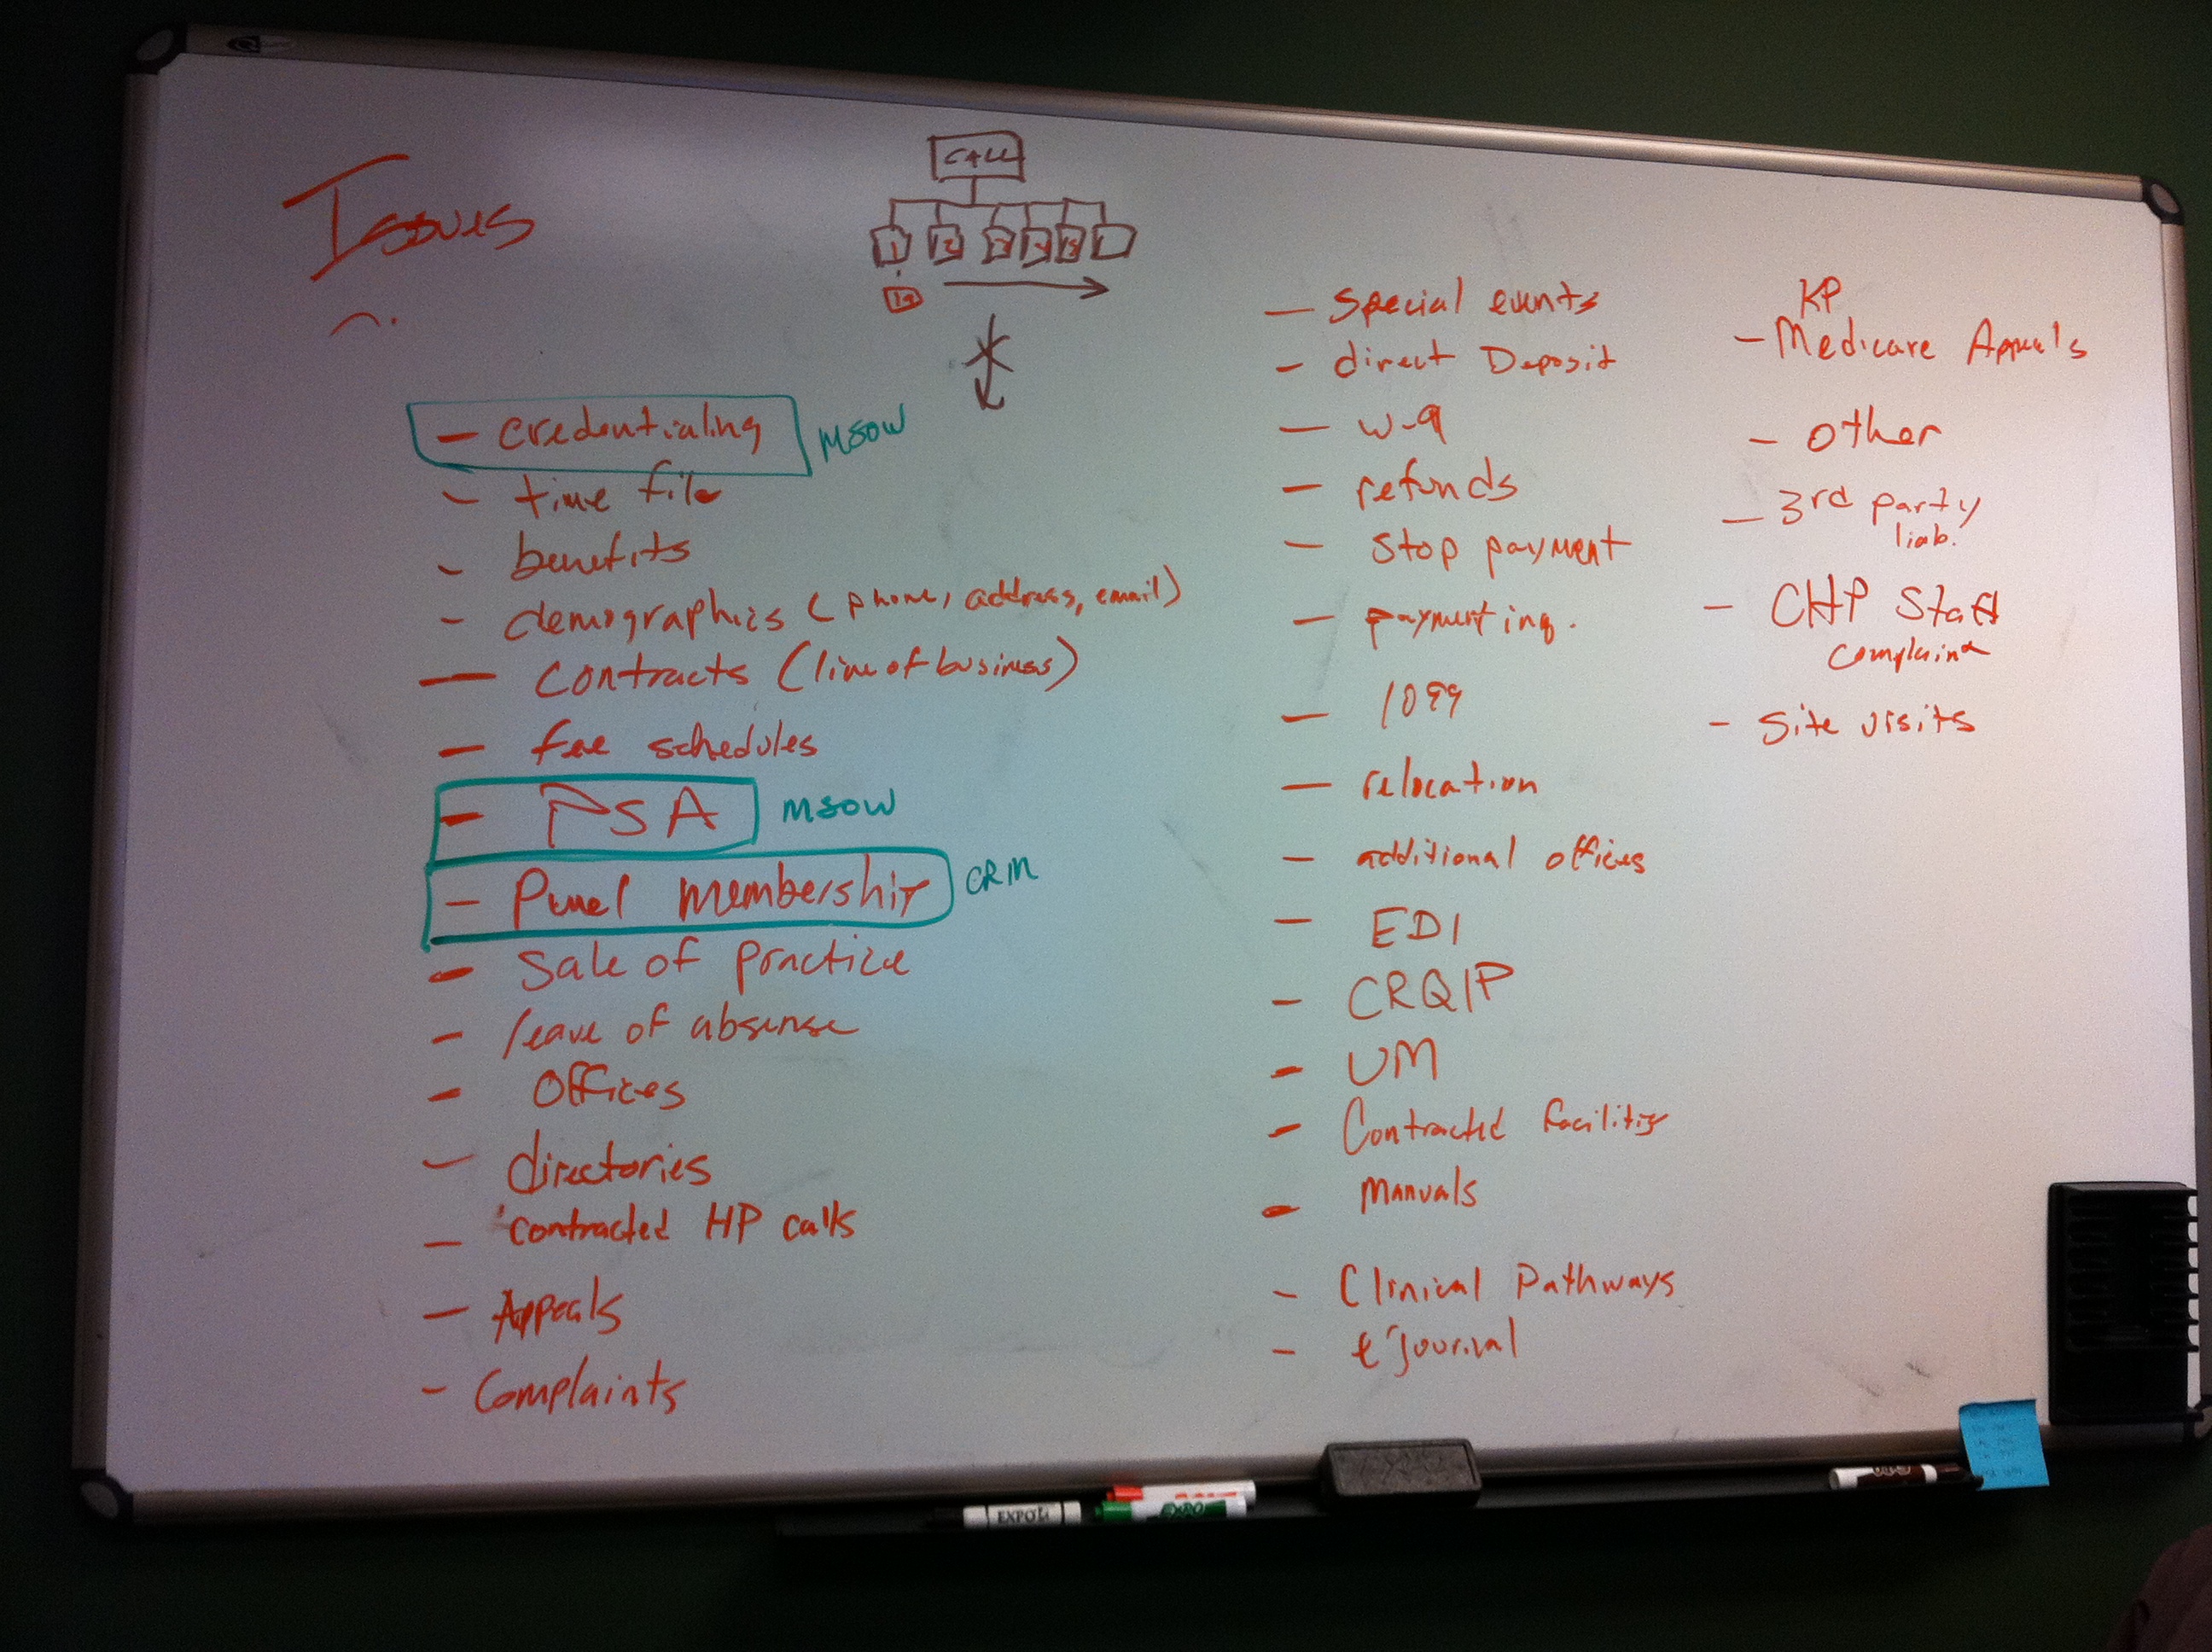 Issues
CALL
1 2 3 4 5
1a
- credentialing MSOW
- time file
- benefits
- demographics (phone, address, email)
- contracts (line of business)
- fee schedules
- PSA MSOW
- Panel membership CRM
- Sale of practice
- leave of absense
- Offices
- directories
- contracted HP calls
- Appeals
- Complaints
- Special events
- direct Deposit
- W-9
- refunds
- stop payment
- payment inq.
- 1099
- relocation
- additional offices
- EDI
- CRQIP
- UM
- Contracted facilities
- Manuals
- Clinical Pathways
- e'Journal
KP
- Medicare Appeals
- other
- 3rd party
liab.
- CHP Staff
Complaint
- Site visits
EXPO
EXPO